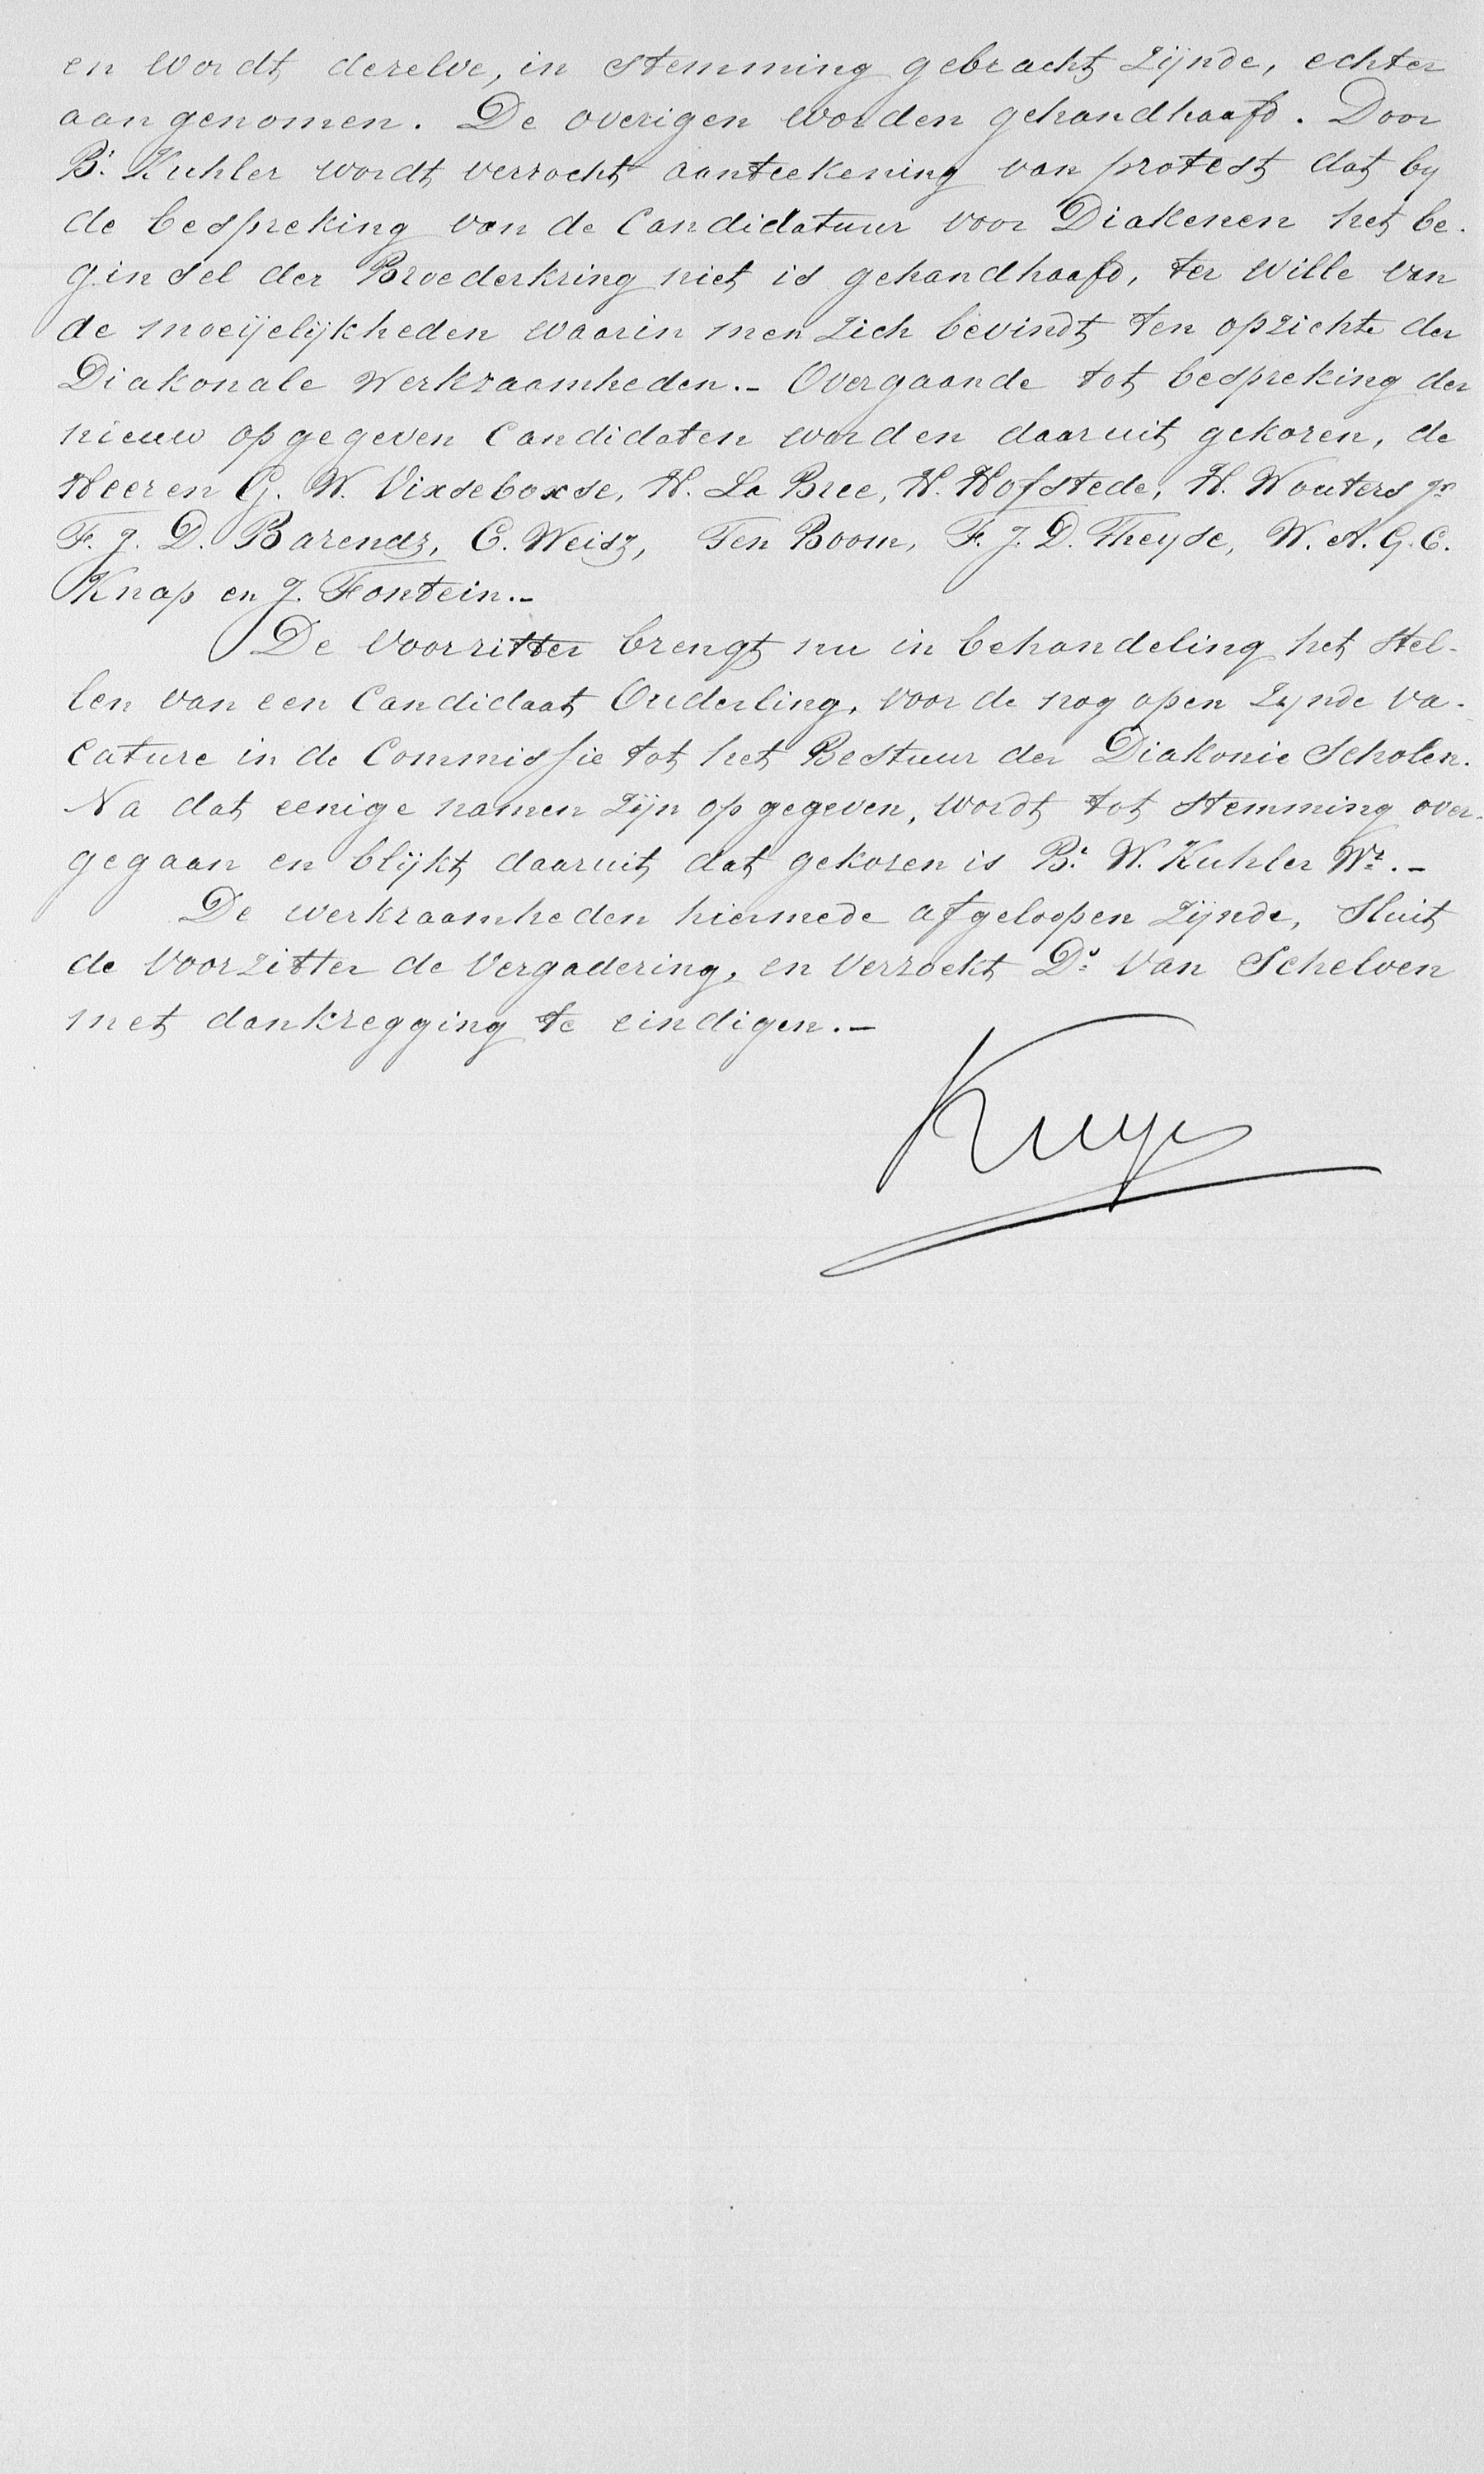 en wordt derelve, in stemming gebracht zijnde, echter
aangenomen. De overigen worden gehandhaafd. Door
Br. Kuhler wordt verzocht aanteekening van protest dat by
de bespreking van de Candidatuur voor Diakenen het be-
ginsel der Broederkring niet is gehandhaafd, ter wille van
de moeijelijkheden waarin men zich bevindt ten opzichte der
Diakonale Werkzaamheden.- Overgaande tot bespreking der
nieuw opgegeven Candidaten worden daaruit gekozen, de
Heeren G. W. Vixseboxse, H. La Bree, H. Hofstede, H. Wouters Jr
F. J. D. Barendz, C. Weisz, Ten Boom, F. J. D. Theyse, W. A. G. C.
Knap en J. Fontein.-
De Voorzitter brengt nu in behandeling het stel-
len van een Candidaat Ouderling, voor de nog open zynde va-
cature in de Commissie tot het Bestuur der Diakonie Scholen.
Na dat eenige namen zijn opgegeven, wordt tot stemming over-
gegaan en blijkt daaruit dat gekozen is Br. W. Kuhler Wz.-
De werkzaamheden hiermede afgeloopen zijnde, sluit
de Voorzitter de Vergadering, en verzoekt Ds. Van Schelven
met dankzegging te eindigen.-
Kuyper